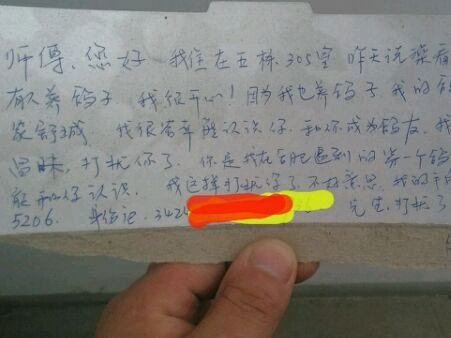 师傅、您好 我住在五栋305室 昨天说没看
有人养鸽子 我很开心！因为我也养鸽子 我的
家 我很荣幸能认识你、和你成为鸽友、我
昌昧，打扰你了、你是我在合肥遇到的第一个鸽
能和你认识、我这样打扰你了、不好意思、我的手
5206、身份证、3424 36 先生、打扰了